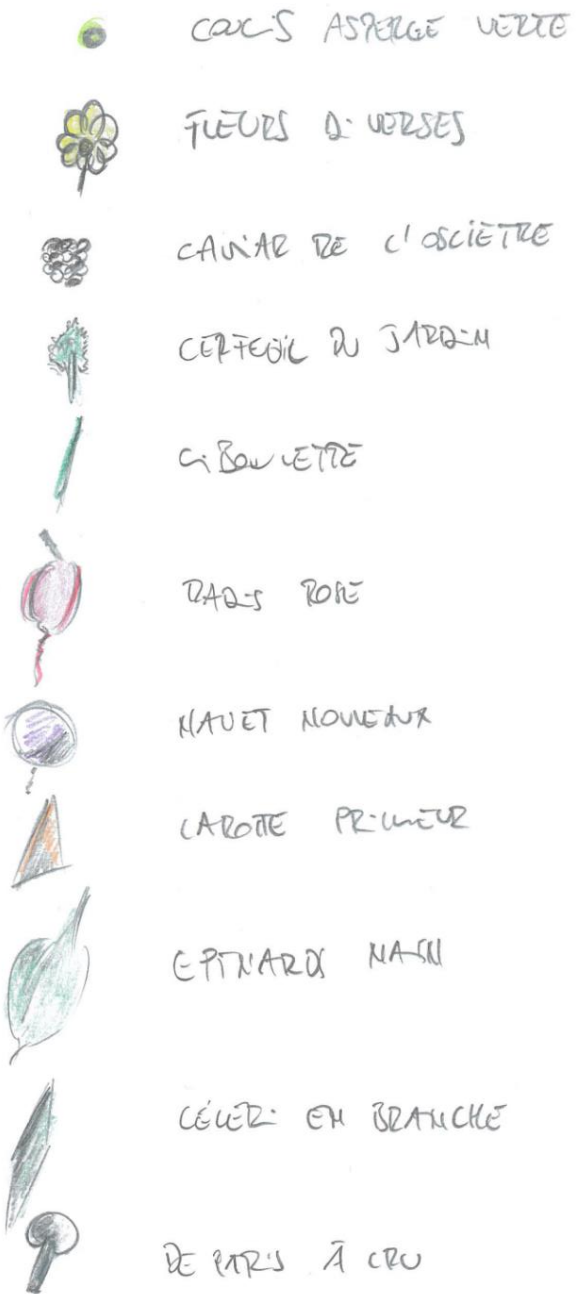 COULIS ASPERGE VERTE
FLEURS DIVERSES
CAVIAR DE L'OSCIÈTRE
CERFEUIL DU JARDIN
CIBOULETTE
RADIS ROSE
NAVET NOUVEAUX
CAROTTE PRIMEUR
EPINARDS NAIN
CÉLERI EN BRANCHE
DE PARIS À CRU